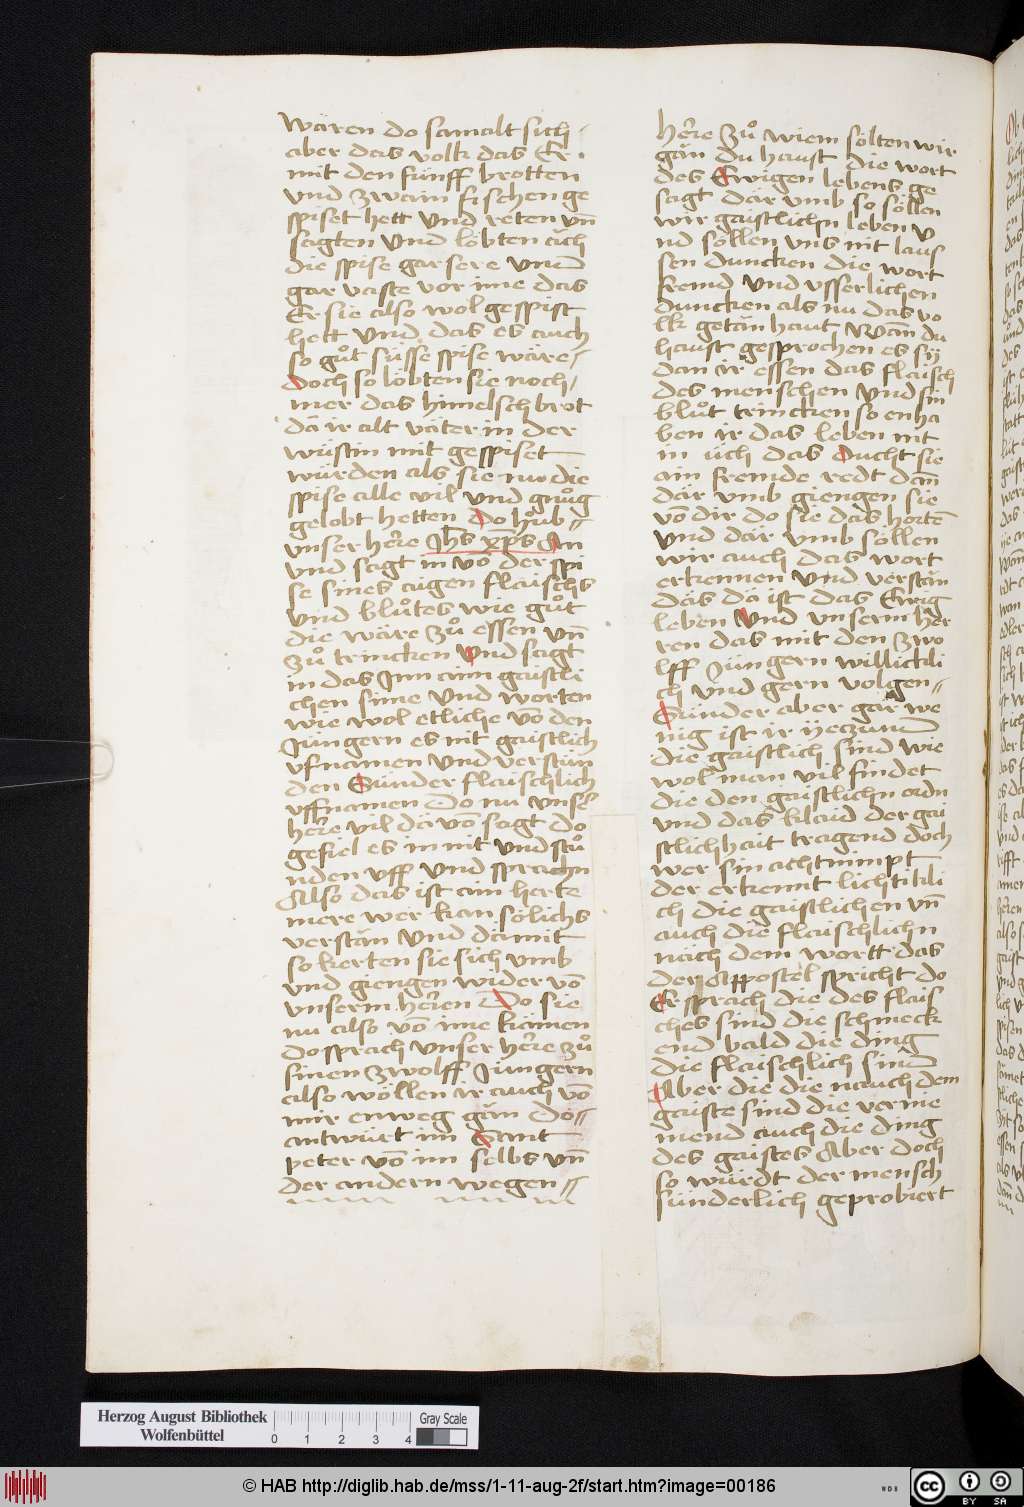 wären do samalt sich /
aber das volk das Er
mit den fünff brotten
vnd zwain fischen ge
spiset hett Vnd reten vn̄
sagten Vnd löbten ăch
die spise gar sere vnd
gar vaste vor ime das
Er sie also wol gespist
hett Vnd das es auch
so gůt süsse spise wäre /
Doch so löbten sie noch /
mer das himelsch brot
dā ir alt väter in der
wüstin mit gespiset
würden als sie nu die
spise alle vil Vnd gnůg
gelobt hetten do hůb //
vnser herre Jhs xp̄s an
vnd sagt in vō der spi
se sines aigen flaischs
Vnd blůtes wie gůt
die wäre zů essen vn̄
zů trincken Vnd sagt
in das Jnn ainn gaistli
chen sinne Vnd worten
wie wol etliche vō den
Jüngern es nit gaistlich
vfnamen Vnd verstůn
den Sünder flaischlich
vffnamen Do nu vnser
herre vil dā vō sagt do
gefiel es in nit Vnd stů
nden vff Vnd sprachn
Also das ist ain herte
mere wer kan sölichs
verstān Vnd dāmit
so kerten sie sich vmb
Vnd giengen wider vō
vnserm herren Do sie
nu also vō ime kāmen
do sprach vnser herre zů
sinen zwolff Jüngern
also wöllen ir auch vō
mir enweg gān Do //
antwürt im Sant
peter vō im selbs vn̄
der andern wegen //
herre zů wiem sölten wir
gān du haust die wort
des Ewigen lebens ge
sagt dār vmb so söllen
wir gaistlichn leben v
nd söllen vns nit laus
sen duncken die wort
fremd Vnd vsserlichen
duncken als nu das vo
lk getān haut Wan̄ du
haust gesprochen es sÿ
dan ir essen das flaisch
des menschen Vnd sin
blůt trincken so en ha
ben ir das leben nit
in üch das ducht sie
ain fremde redt dan̄
dār vmb giengen sie
vō dir do sie das hortē
vnd dār vmb söllen
wir auch das wort
erkennen Vnd verstān
das dā ist das Ewig
leben Vnd vnserm her
ren das mit den zwo
lff Jüngern willickli
ch Vnd gern volgen //
Sünder aber gar we
nig ist ir yeczund
die gaistlich sind wie
wol man vil findet
die den gaistlichn ordn
vnd das klaid der gai
stlichhait tragend doch
wer sin acht nimpt
der erkennt lichtikli
ch die gaistlichen vn̄
auch die flaischlichn
nāch dem wortt das
der Appostel spricht do
Er sprach die des flais
ches sind die schmeck
end bald die ding
die flaischlich sind
Aber die die nauch dem
gaiste sind die verne
mend auch die ding
des gaistes Aber doch
so würdt der mensch
sünderlich geprobiert
Herzog August Bibliothek
Wolfenbüttel
0 1 2 3 4
Gray Scale
© HAB http://diglib.hab.de/mss/1-11-aug-2f/start.htm?image=00186
cc BY SA